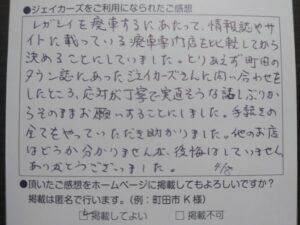 ●ジェイカーズをご利用になられたご感想
レガシィを廃車するにあたって、情報誌やサ
イトに載っている廃車専門店を比較してから
決めることにしていました。とりあえず町田の
タウン誌にあったジェイカーズさんに問い合わせを
したところ、応対が丁寧で実直そうな話しぶりから
そのままお願いすることにしました。手続きの
全てをやっていただき助かりました。他のお店
はどうか分かりませんが、後悔はしていません。
ありがとうございました。 4/8
●頂いたご感想をホームページに掲載してもよろしいですか？
掲載は匿名で行います。(例：町田市 K 様)
☑掲載してよい □掲載不可